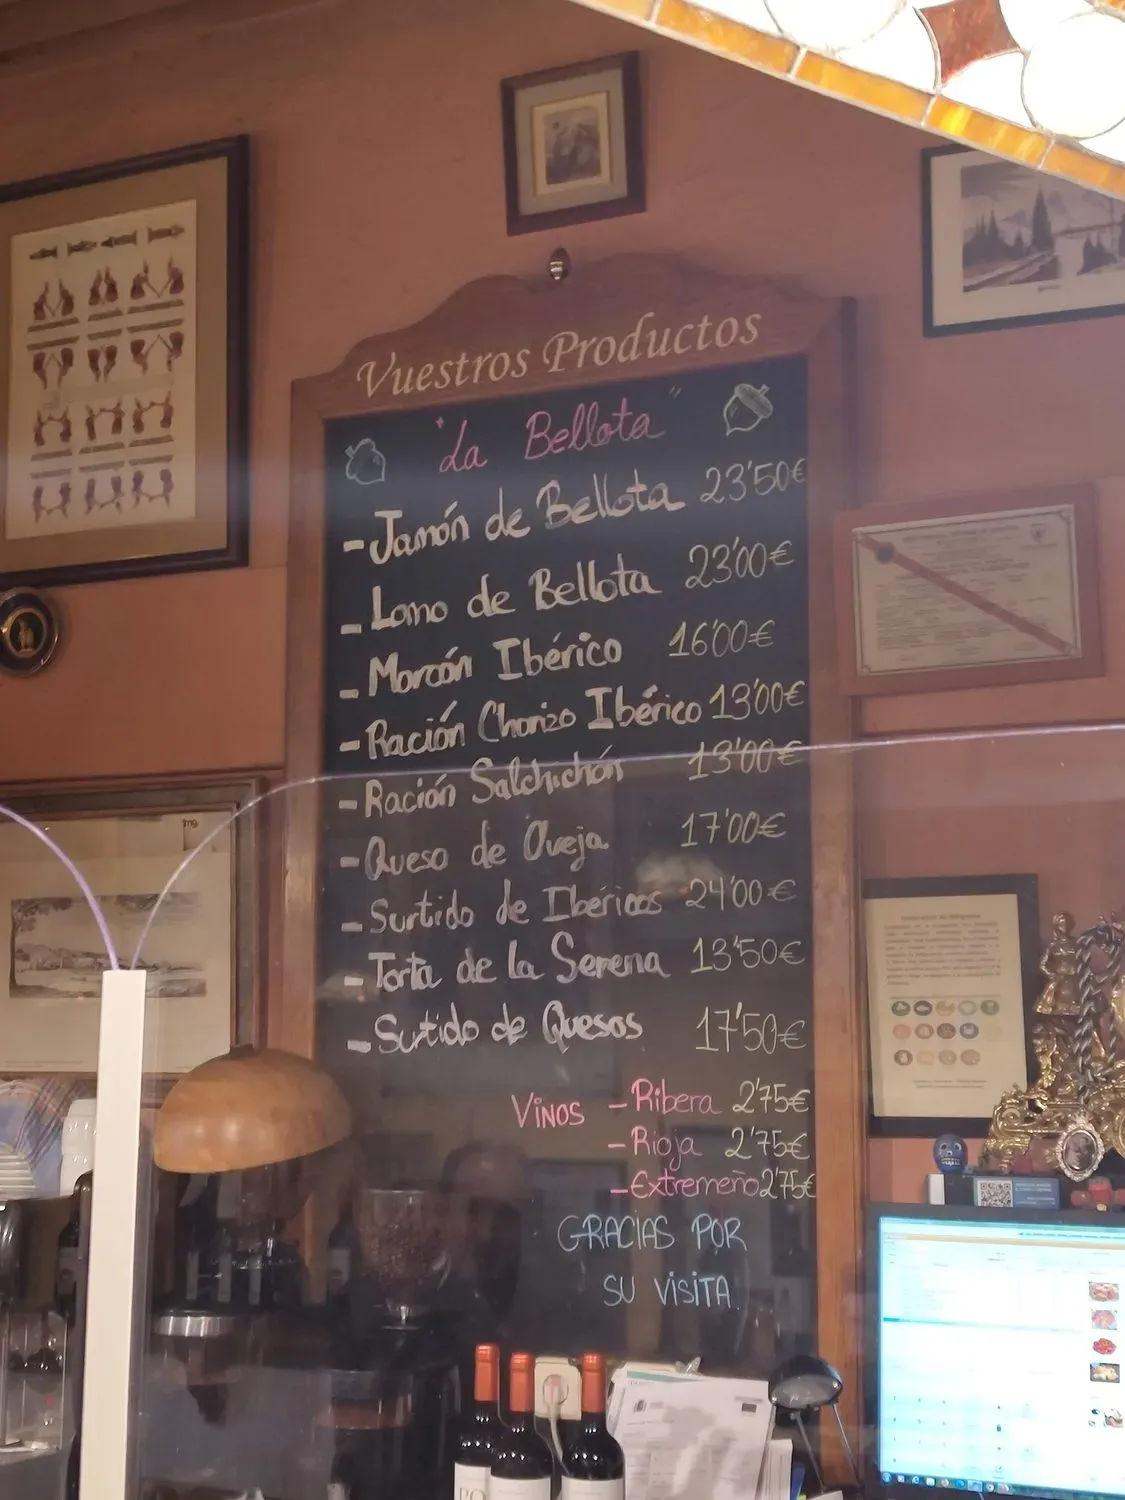 Vuestros Productos
"La Bellota"
- Jamón de Bellota 23'50€
- Lomo de Bellota 23'00€
- Morcón Ibérico 16'00€
- Ración Chorizo Ibérico 13'00€
- Ración Salchichón 13'00€
- Queso de Oveja 17'00€
- Surtido de Ibéricos 24'00€
- Torta de la Serena 13'50€
- Surtido de Quesos 17'50€
VINOS - Ribera 2'75€
- Rioja 2'75€
- Extremeño 2'75€
GRACIAS POR
SU VISITA.